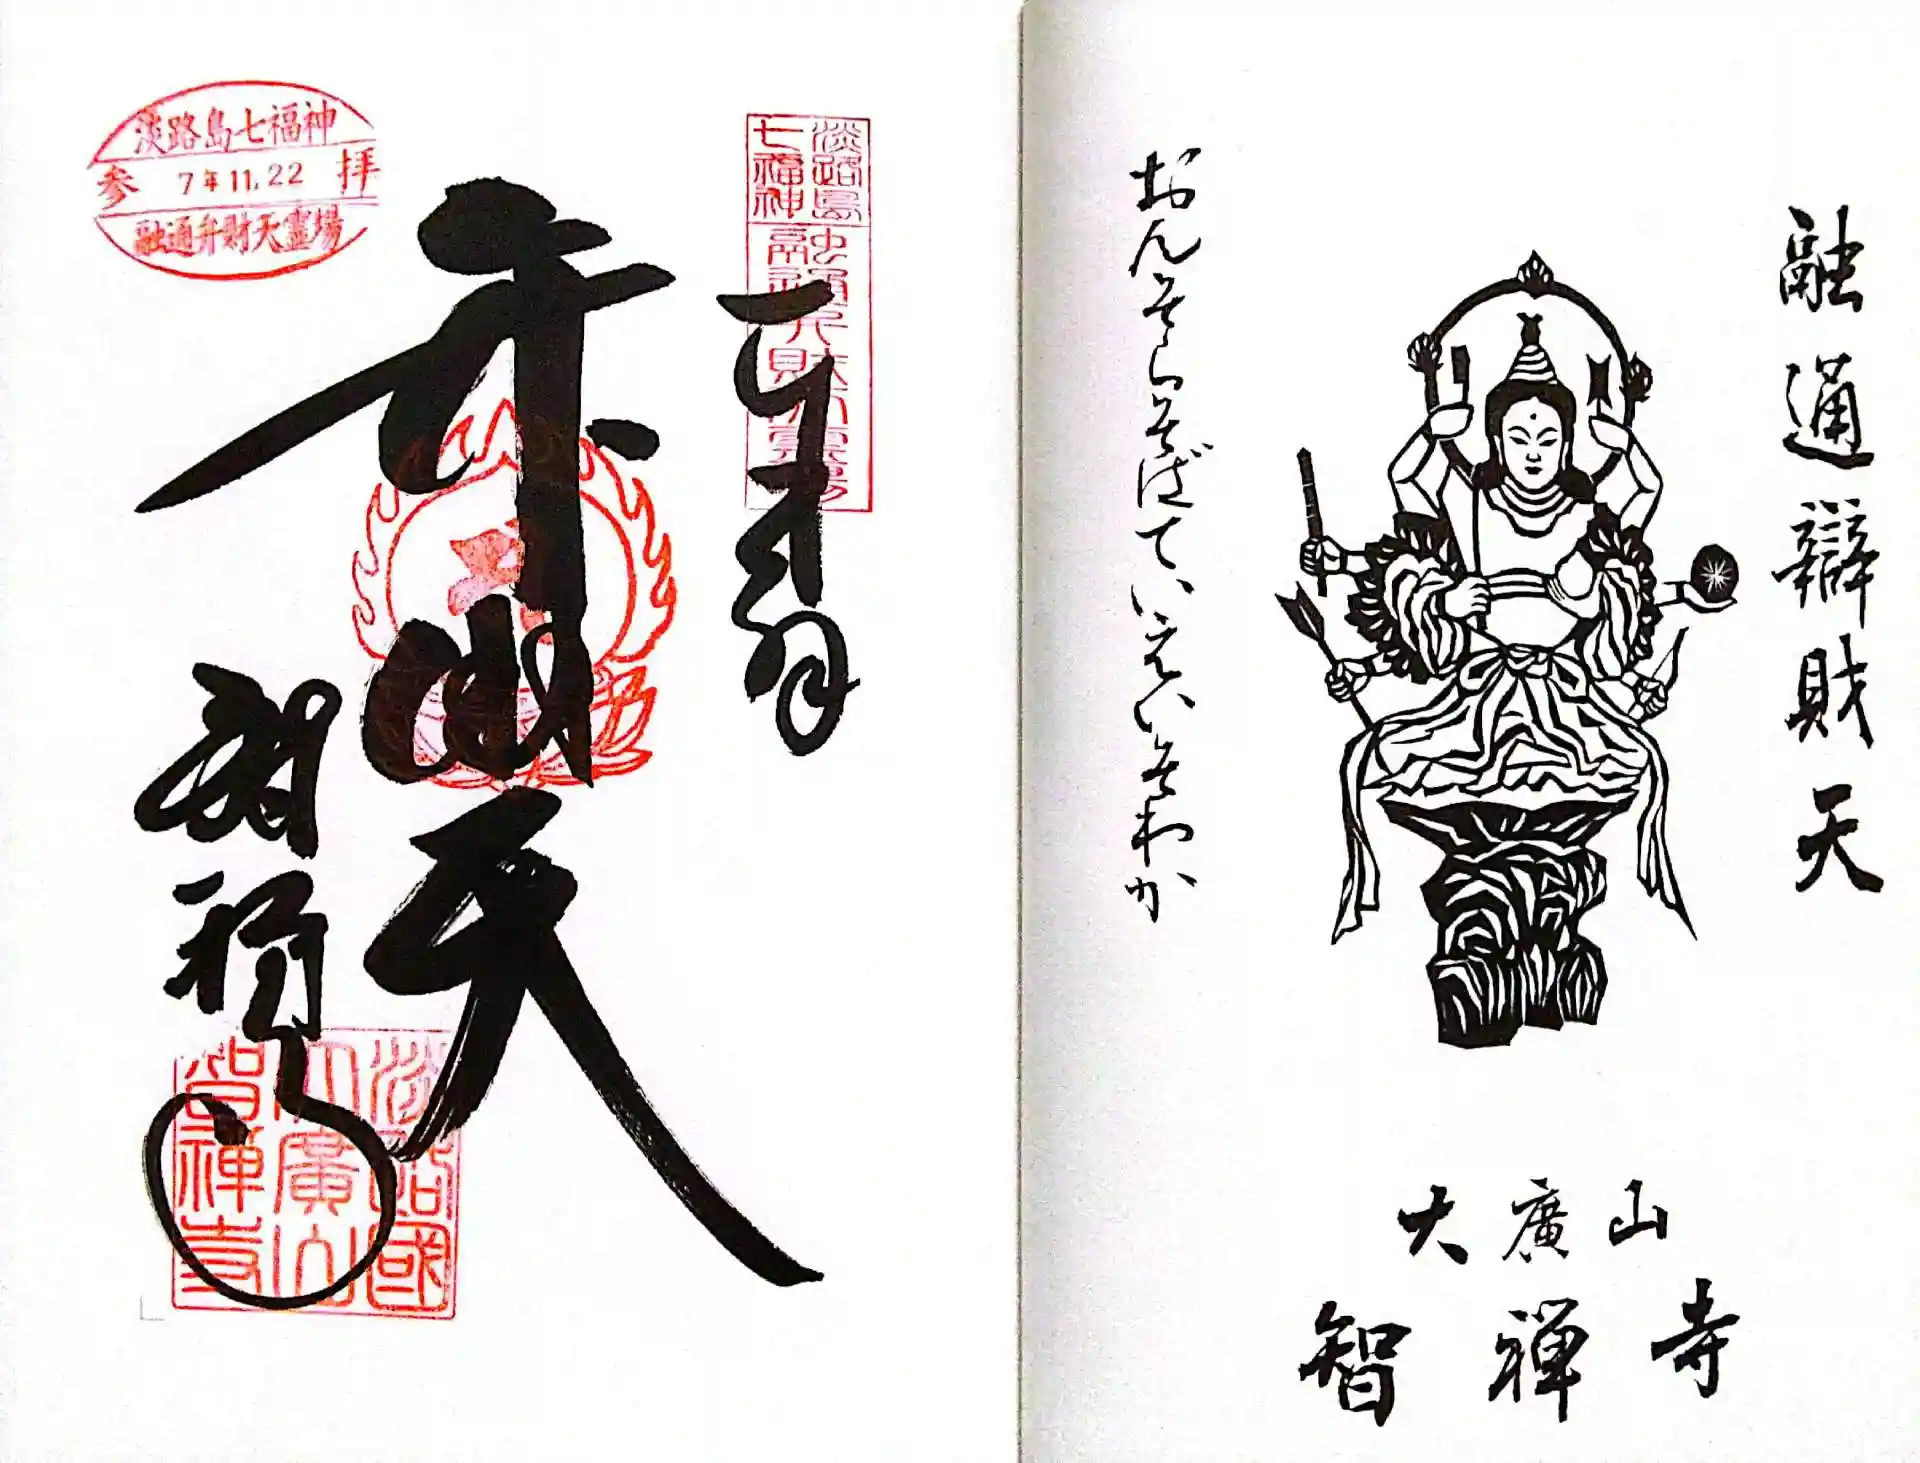 淡路島七福神
参 7年11.22 拝
融通弁財天霊場
淡路島
七福神
融通弁財天霊場
弁財天
智禅寺
淡路國
大廣山
智禅寺
融通辯財天
おんそらそばていえいそわか
大廣山
智禅寺